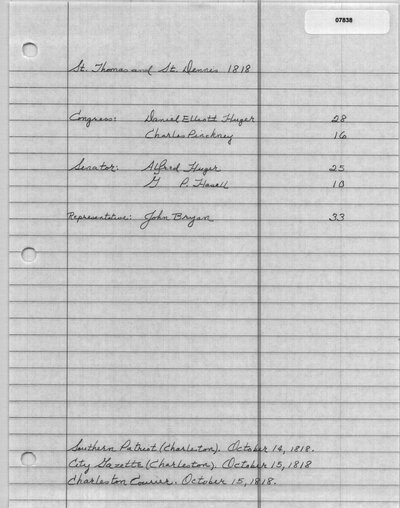 07838
St. Thomas and St. Dennis 1818
Congress: Daniel Elliott Huger 28
Charles Pinckney 16
Senator: Alfred Huger 25
G P. 10
Representative: John Bryan 33
Southern Patriot (Charleston). October 14, 1818.
City Gazette (Charleston). October 15, 1818
Charleston Courier. October 15, 1818.